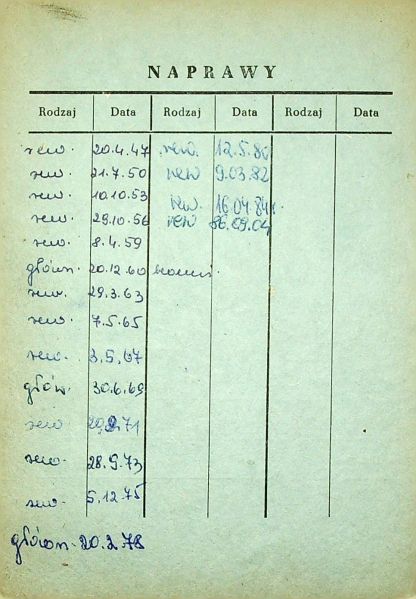 NAPRAWY
Rodzaj Data Rodzaj Data Rodzaj Data
rew. 20.4.47 rew. 12.5.80
rew. 21.7.50 rew 9.03.82
rew. 10.10.53 rew. 16.04.84r.
rew. 29.10.56 rew 86.09.04
rew. 8.4.59
główn. 20.12.60
rew. 29.3.63
rew. 7.5.65
rew. 3.5.67
główn. 30.6.69
rew 71
rew. 28.9.73
rew. 5.12.75
główn. 20.2.78